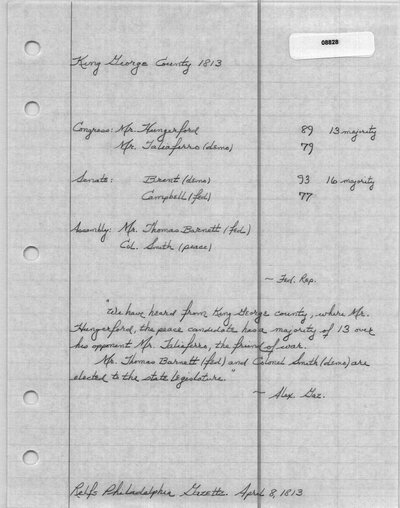 08828
King George County 1813
Congress: Mr. Hungerford 89 13 majority
Mr. Taliaferro (demo) 79
Senate: Brent (demo) 93 16 majority
Campbell (fed) 77
Assembly: Mr. Thomas Barnett (fed)
Col. Smith (peace)
— Fed. Rep.
"We have heard from King George county, where Mr.
Hungerford, the peace candidate has a majority of 13 over
his opponent Mr. Taliaferro, the friend of war.
Mr. Thomas Barnett (fed) and Colonel Smith (demo) are
elected to the state legislature."
— Alex. Gaz.
Relf's Philadelphia Gazette. April 8, 1813.